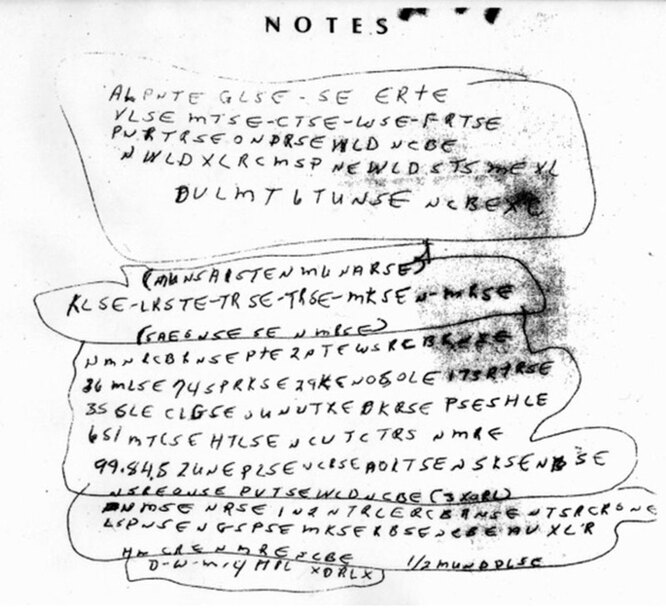 NOTES
ALPNTE GLSE - SE ERTE
VLSE MTSE-CTSE-WSE-FRTSE
PNRTRSE ONDRSE WLD NCBE
NWLDXLRCMSP NEWLD STS MEXL
DULMT 6 TUNSE NCBEXE
(MUNSAISTEN MUNARSE)
KLSE-LRSTE-TRSE-TRSE-MKSEN-MRSE
(SAEGNSE SE NMRSE)
NMNRCBRNSE PTE 2 NTE WSRCBRNSE
36 MLSE 74 SPRKSE 29 KENOSOLE 173 RTRSE
35 GLE CLGSE UNUTXE DKRSE PSESHLE
651 MTCSE HTLSE NCUTCTRS NMRE
99.84.5 2UNE PLSE NCRSE AOLTSE NSKSE NBSE
NSREONSE PVTSE WLD NCBE (3XORL)
NMSE NRSE IN2NTRLERCBRNSE NTSRCRONE
LSPNSE NGSPSE MKSERBSE NCBE AV XL'R
HM CRE NMRE NCBE 1/2 MUNDDLSE
D-W-M-4 MPL XDRLX